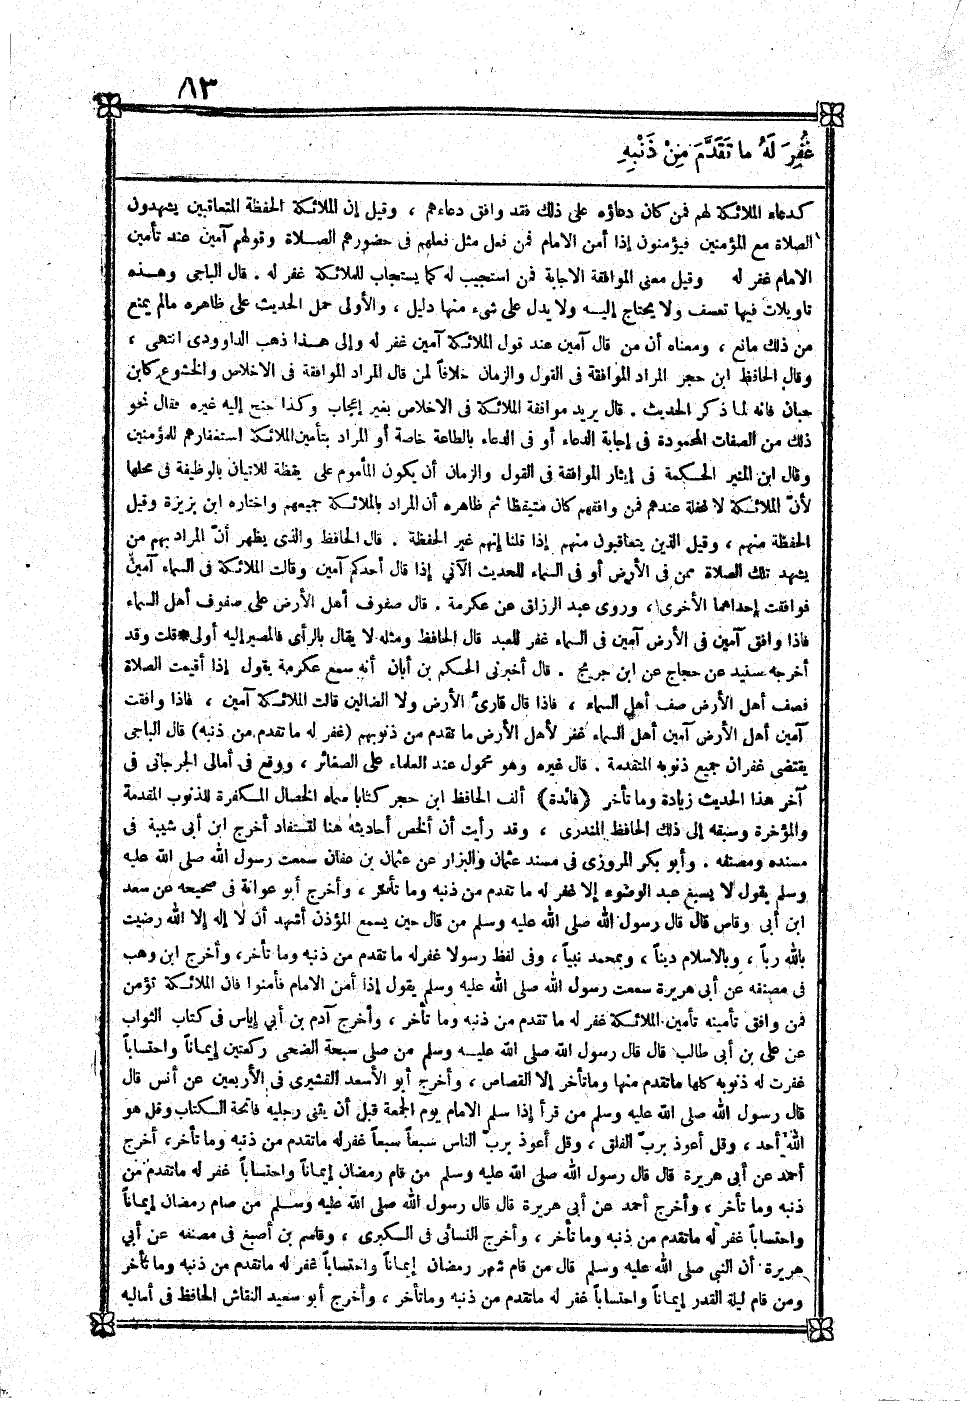 ٨٣
غُفِرَ لَهُ ما تَقَدَّمَ مِنْ ذَنْبِهِ
كدعاء الملائكة لهم فمن كان دعاؤه على ذلك فقد وافق دعاءهم ، وقيل إن الملائكة الحفظة المتعاقبين يشهدون
الصلاة مع المؤمنين فيؤمنون إذا أمن الامام فمن فعل مثل فعلهم فى حضورهم الصلاة وقولهم آمين عند تأمين
الامام غفر له وقيل معنى الموافقة الاجابة فمن استجيب له كما يستجاب للملائكة غفر له . قال الباجى وهذه
تاويلات فيها تعسف ولا يحتاج إليه ولا يدل على شىء منها دليل ، والأولى حمل الحديث على ظاهره مالم يمنع
من ذلك مانع ، ومعناه أن من قال آمين عند قول الملائكة آمين غفر له وإلى هذا ذهب الداوودى انتهى ،
وقال الحافظ ابن حجر المراد الموافقة فى القول والزمان خلافاً لمن قال المراد الموافقة فى الاخلاص والخشوع كابن
حبان فانه لما ذكر الحديث . قال يريد موافقة الملائكة فى الاخلاص بغير إعجاب وكذا جنح إليه غيره فقال نحو
ذلك من الصفات المحمودة فى إجابة الدعاء أو فى الدعاء بالطاعة خاصة أو المراد بتأمين الملائكة استغفارهم للمؤمنين
وقال ابن المنير الحكمة فى إيثار الموافقة فى القول والزمان أن يكون المأموم على يقظة للاتيان بالوظيفة فى محلها
لأنّ الملائكة لا غفلة عندهم فمن وافقهم كان متيقظا ثم ظاهره أن المراد بالملائكة جميعهم واختاره ابن بزيزة وقيل
الحفظة منهم ، وقيل الذين يتعاقبون منهم إذا قلنا إنهم غير الحفظة . قال الحافظ والذى يظهر أنّ المراد بهم من
يشهد تلك الصلاة ممن فى الأرض أو فى السماء للحديث الآتي إذا قال أحدكم آمين وقالت الملائكة فى السماء آمين
فوافقت إحداهما الأخرى ، وروى عبد الرزاق عن عكرمة . قال صفوف أهل الأرض على صفوف أهل السماء
فاذا وافق آمين فى الأرض آمين فى السماء غفر للعبد قال الحافظ ومثله لا يقال بالرأى فالمصير إليه أولى * قلت وقد
أخرجه سنيد عن حجاج عن ابن جريج . قال أخبرنى الحكم بن أبان أنه سمع عكرمة يقول إذا أقيمت الصلاة
فصف أهل الأرض صف أهل السماء ، فاذا قال قارئ الأرض ولا الضالين قالت الملائكة آمين ، فاذا وافقت
آمين أهل الأرض آمين أهل السماء غفر لأهل الأرض ما تقدم من ذنوبهم (غفر له ما تقدم من ذنبه) قال الباجى
يقتضى غفران جميع ذنوبه المتقدمة . قال غيره وهو محمول عند العلماء على الصغائر ، ووقع فى أمالى الجرجانى فى
آخر هذا الحديث زيادة وما تأخر (فائدة) ألف الحافظ ابن حجر كتابا سماه الخصال المكفرة للذنوب المقدمة
والمؤخرة وسبقه إلى ذلك الحافظ المنذرى ، وقد رأيت أن ألخص أحاديثه هنا لتستفاد أخرج ابن أبى شيبة فى
مسنده ومصنفه . وأبو بكر المروزى فى مسند عثمان والبزار عن عثمان بن عفان سمعت رسول الله صلى الله عليه
وسلم يقول لا يسبغ عبد الوضوء إلا غفر له ما تقدم من ذنبه وما تأخر ، وأخرج أبو عوانة فى صحيحه عن سعد
ابن أبى وقاص قال قال رسول الله صلى الله عليه وسلم من قال حين يسمع المؤذن أشهد أن لا إله إلا الله رضيت
بالله رباً ، وبالاسلام ديناً ، وبمحمد نبياً ، وفى لفظ رسولا غفر له ما تقدم من ذنبه وما تأخر ، وأخرج ابن وهب
فى مصنفه عن أبى هريرة سمعت رسول الله صلى الله عليه وسلم يقول إذا أمن الامام فأمنوا فان الملائكة تؤمن
فمن وافق تأمينه تأمين الملائكة غفر له ما تقدم من ذنبه وما تأخر ، وأخرج آدم بن أبي إياس فى كتاب الثواب
عن على بن أبى طالب قال قال رسول الله صلى الله عليه وسلم من صلى سبحة الضحى ركعتين إيماناً واحتساباً
غفرت له ذنوبه كلها ماتقدم منها وماتأخر إلا القصاص ، وأخرج أبو الأسعد القشيرى فى الأربعين عن أنس قال
قال رسول الله صلى الله عليه وسلم من قرأ إذا سلم الامام يوم الجمعة قبل أن يثنى رجليه فاتحة الكتاب وقل هو
الله أحد ، وقل أعوذ بربّ الفلق ، وقل أعوذ بربّ الناس سبعاً سبعاً غفر له ماتقدم من ذنبه وما تأخر ، أخرج
أحمد عن أبى هريرة قال قال رسول الله صلى الله عليه وسلم من قام رمضان إيماناً واحتساباً غفر له ماتقدم من
ذنبه وما تأخر ، وأخرج أحمد عن أبى هريرة قال قال رسول الله صلى الله عليه وسلم من صام رمضان إيماناً
واحتساباً غفر له ماتقدم من ذنبه وما تأخر ، وأخرج النسائى فى الكبرى ، وقاسم بن أصبغ فى مصنفه عن أبي
هريرة أن النبى صلى الله عليه وسلم قال من قام شهر رمضان إيماناً واحتساباً غفر له ماتقدم من ذنبه وما تأخر
ومن قام ليلة القدر إيماناً واحتساباً غفر له ماتقدم من ذنبه وماتأخر ، وأخرج أبو سعيد النقاش الحافظ فى أماليه